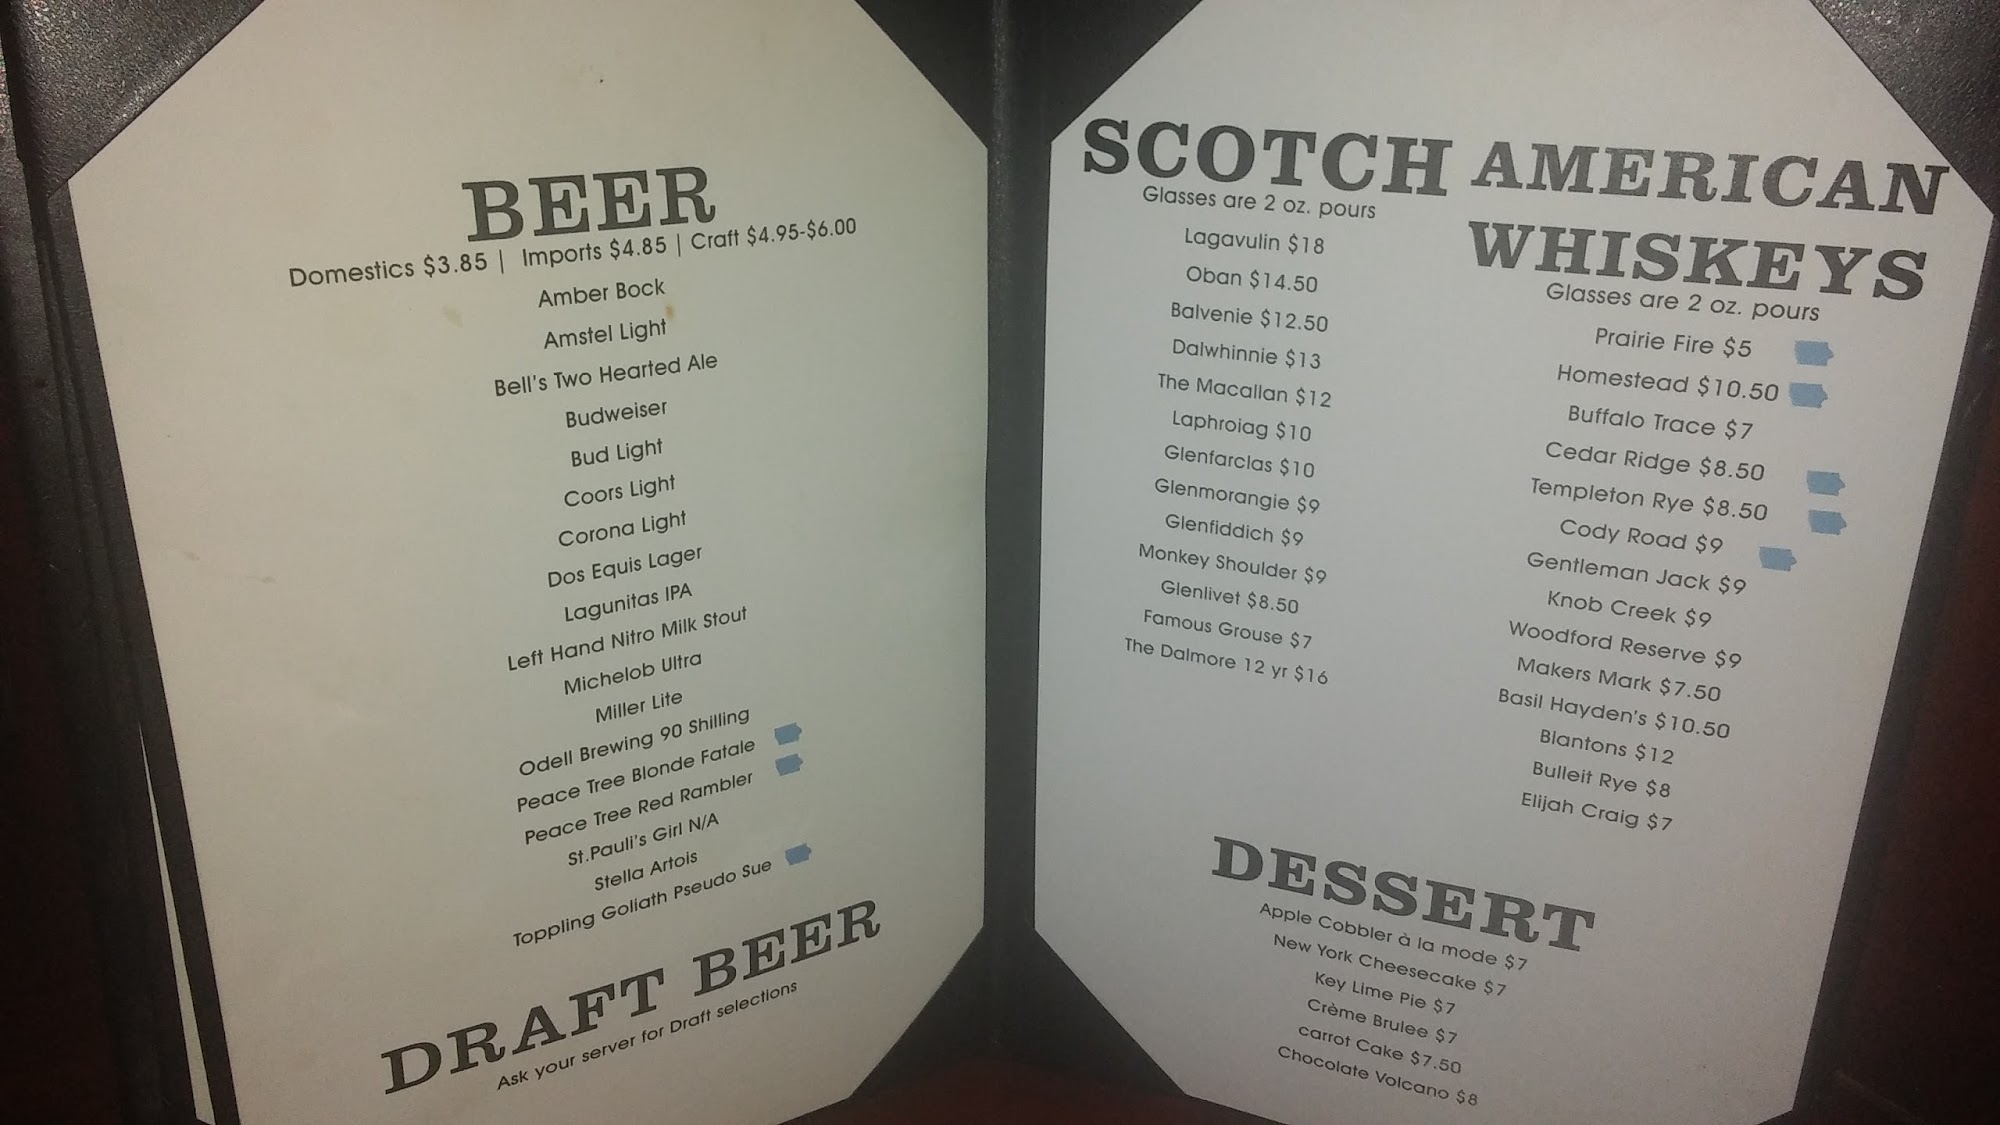 BEER
Domestics $3.85 | Imports $4.85 | Craft $4.95-$6.00
Amber Bock
Amstel Light
Bell's Two Hearted Ale
Budweiser
Bud Light
Coors Light
Corona Light
Dos Equis Lager
Lagunitas IPA
Left Hand Nitro Milk Stout
Michelob Ultra
Miller Lite
Odell Brewing 90 Shilling
Peace Tree Blonde Fatale
Peace Tree Red Rambler
St.Pauli's Girl N/A
Stella Artois
Toppling Goliath Pseudo Sue
DRAFT BEER
Ask your server for Draft selections
SCOTCH
Glasses are 2 oz. pours
Lagavulin $18
Oban $14.50
Balvenie $12.50
Dalwhinnie $13
The Macallan $12
Laphroiag $10
Glenfarclas $10
Glenmorangie $9
Glenfiddich $9
Monkey Shoulder $9
Glenlivet $8.50
Famous Grouse $7
The Dalmore 12 yr $16
AMERICAN
WHISKEYS
Glasses are 2 oz. pours
Prairie Fire $5
Homestead $10.50
Buffalo Trace $7
Cedar Ridge $8.50
Templeton Rye $8.50
Cody Road $9
Gentleman Jack $9
Knob Creek $9
Woodford Reserve $9
Makers Mark $7.50
Basil Hayden's $10.50
Blantons $12
Bulleit Rye $8
Elijah Craig $7
DESSERT
Apple Cobbler à la mode $7
New York Cheesecake $7
Key Lime Pie $7
Crème Brulee $7
carrot Cake $7.50
Chocolate Volcano $8